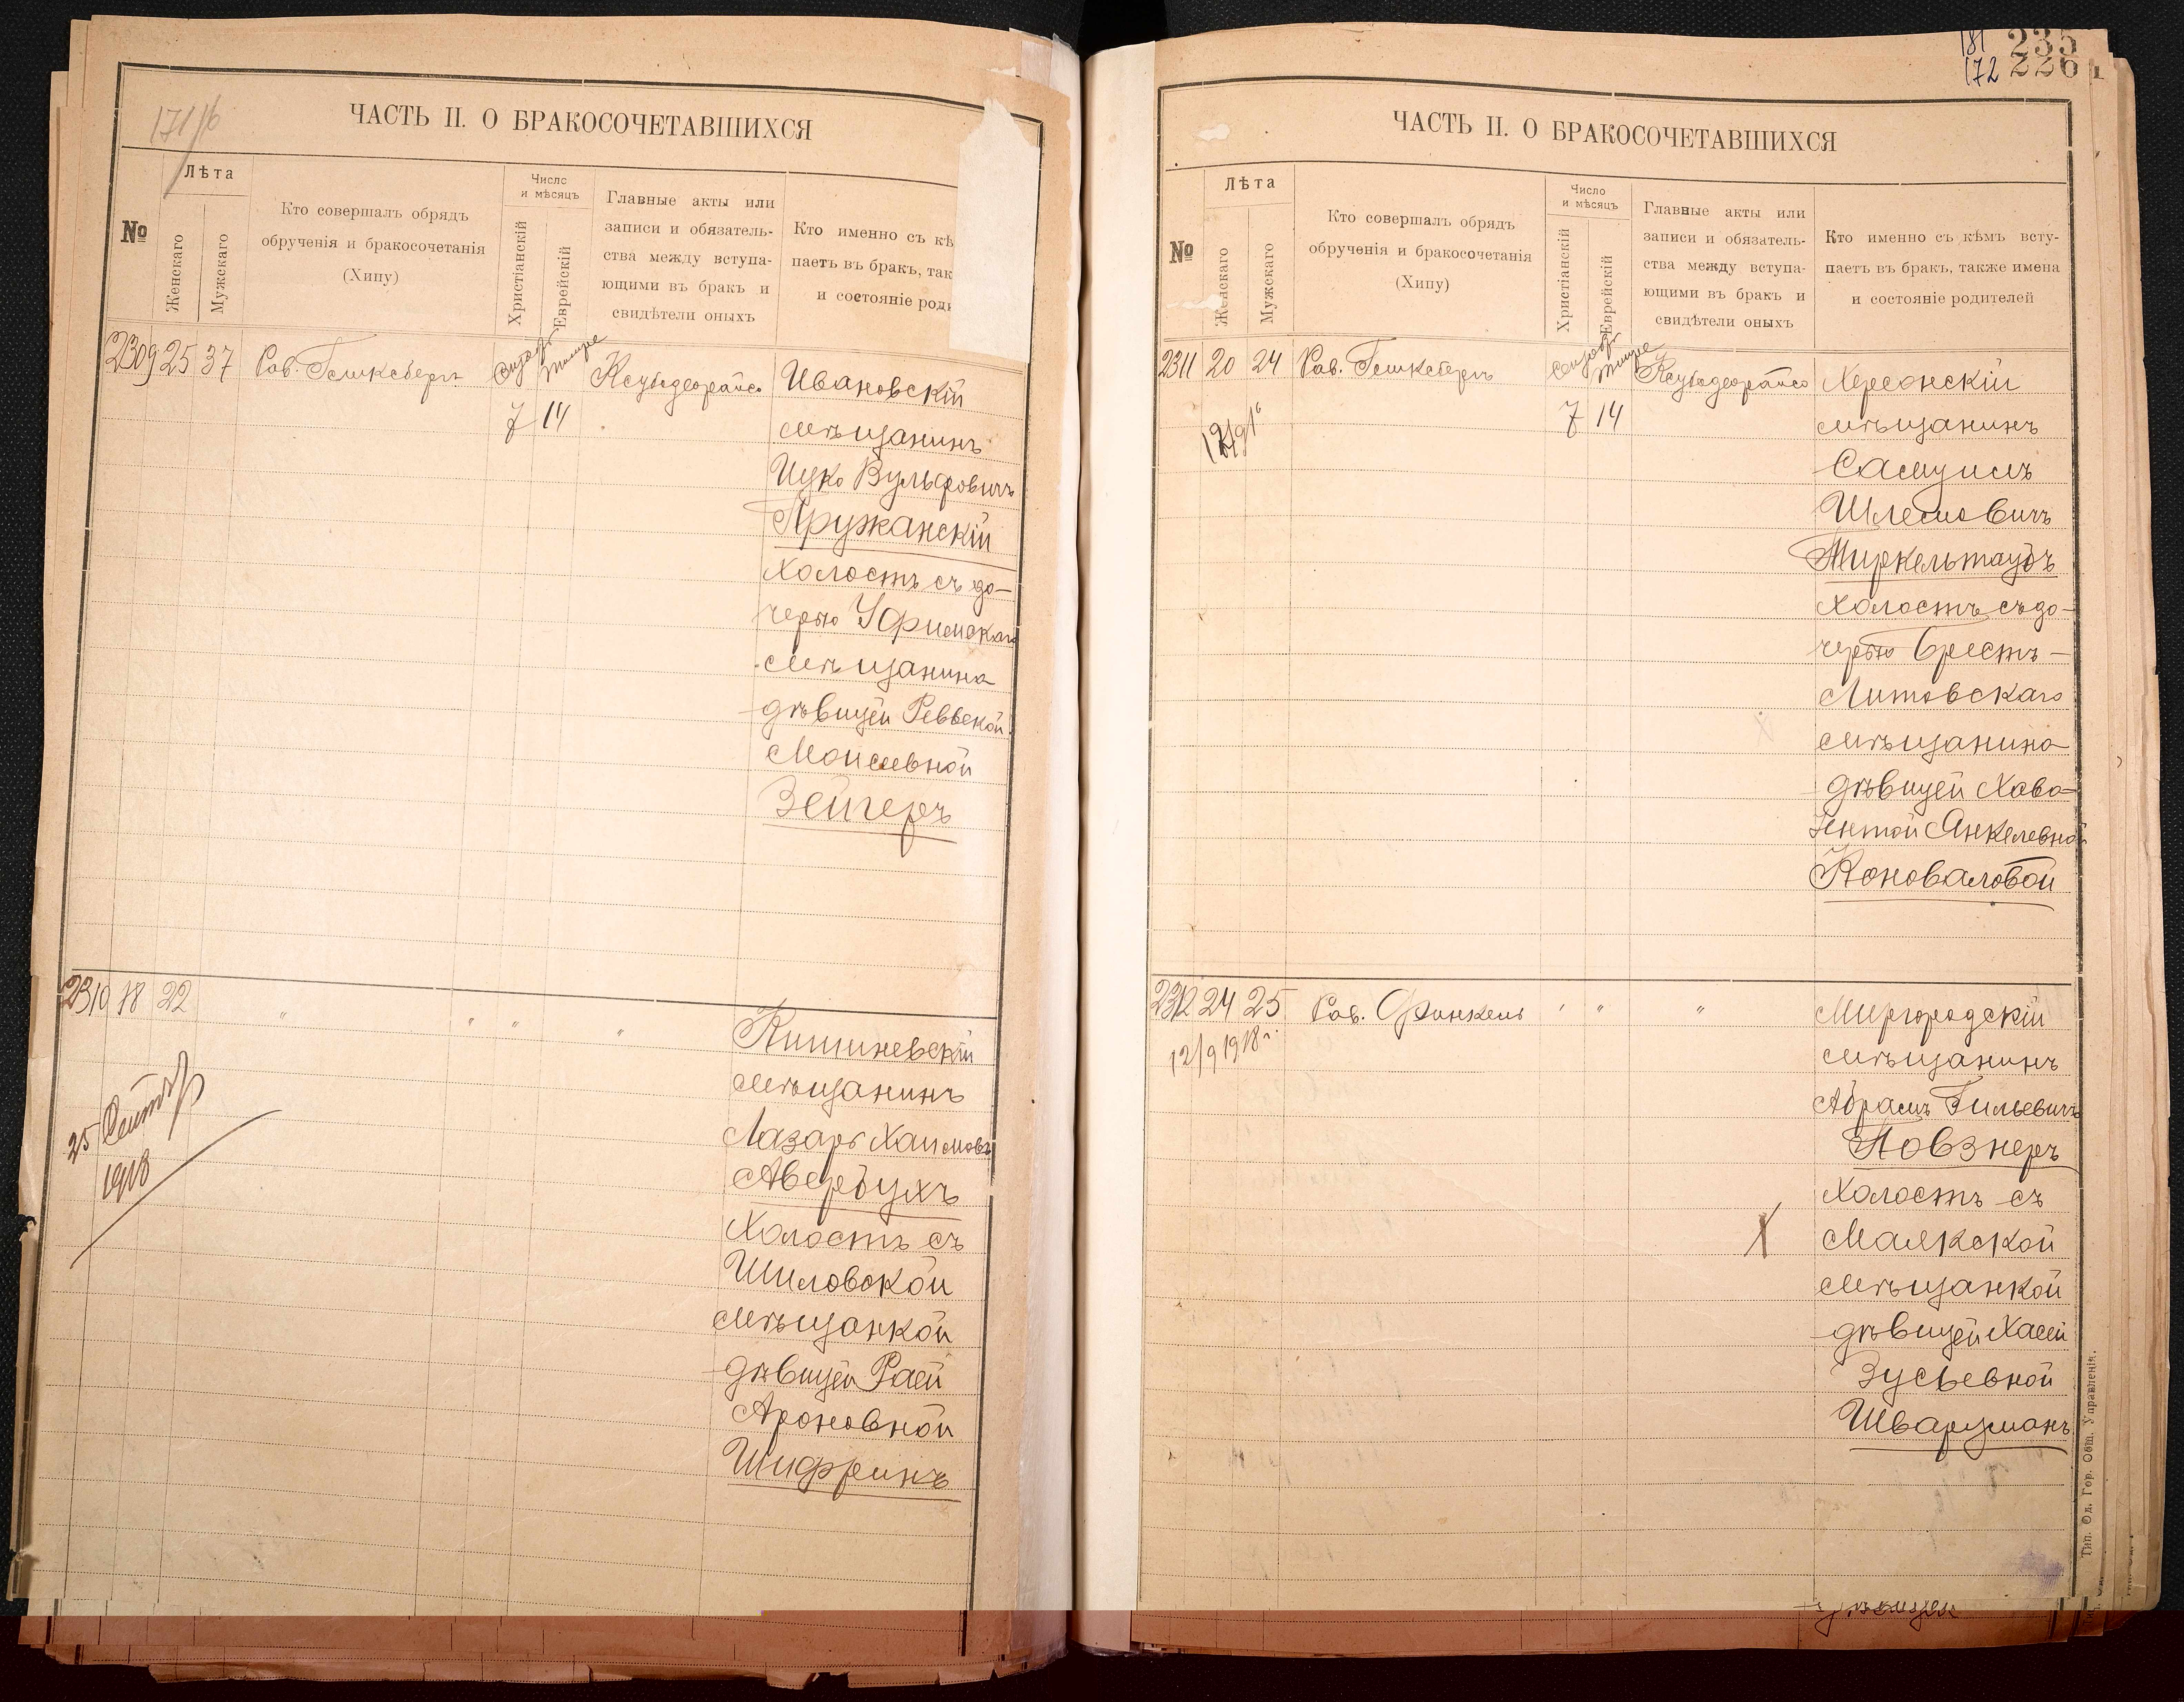 171/б
ЧАСТЬ II. О БРАКОСОЧЕТАВШИХСЯ
№
Лѣта
Женскаго
Мужскаго
Кто совершалъ обрядъ
обрученія и бракосочетанія
(Хипу)
Число
и мѣсяцъ
Христіанскій
Еврейскій
Главные акты или
записи и обязатель-
ства между вступа-
ющими въ бракъ и
свидѣтели оныхъ
Кто именно съ кѣ
паетъ въ бракъ, так
и состояніе род
2309 25 37 Рав. 7 14 Ивановскій
мѣщанинъ
Ицко Вульфовичъ
Пружанскій
холостъ съ до-
черью Уфимскаго
мѣщанина
дѣвицей Реввекой
Моисеевной
Зейгеръ
2310 18 22 " " " " Кишиневскій
мѣщанинъ
Лазарь Хаимовъ
Авербухъ
холостъ съ
Шиловской
мѣщанкой
дѣвицей Раей
Ароновной
Шифринъ
25 Сентяб
1918
181 235
172 226
ЧАСТЬ II. О БРАКОСОЧЕТАВШИХСЯ
№
Лѣта
Женскаго
Мужскаго
Кто совершалъ обрядъ
обрученія и бракосочетанія
(Хипу)
Число
и мѣсяцъ
Христіанскій
Еврейскій
Главные акты или
записи и обязатель-
ства между вступа-
ющими въ бракъ и
свидѣтели оныхъ
Кто именно съ кѣмъ всту-
паетъ въ бракъ, также имена
и состояніе родителей
2311 20 24 Рав. 7 14 Херсонскій
мѣщанинъ
Самуилъ
Шлемовичъ
Тиркельтаубъ
холостъ съ до-
черью Брестъ-
Литовскаго
мѣщанина
дѣвицей Хава-
Ентой Янкелевной
Коноваловой
2312 24 25 Рав. Финкель " " " Миргородскій
12/9 1918г. мѣщанинъ
Абрамъ Гильевичъ
Повзнеръ
холостъ съ
Маякской
мѣщанкой
дѣвицей Хаей
Зусьевной
Шварцманъ
Тип. Од. Гор. Общ. Управленія.